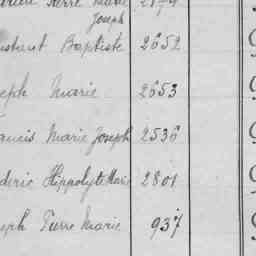 Pierre Marie
Joseph
Baptiste 2652
Marie 2653
Marie Joseph 2536
Hippolyte Marie 2801
Pierre Marie 937